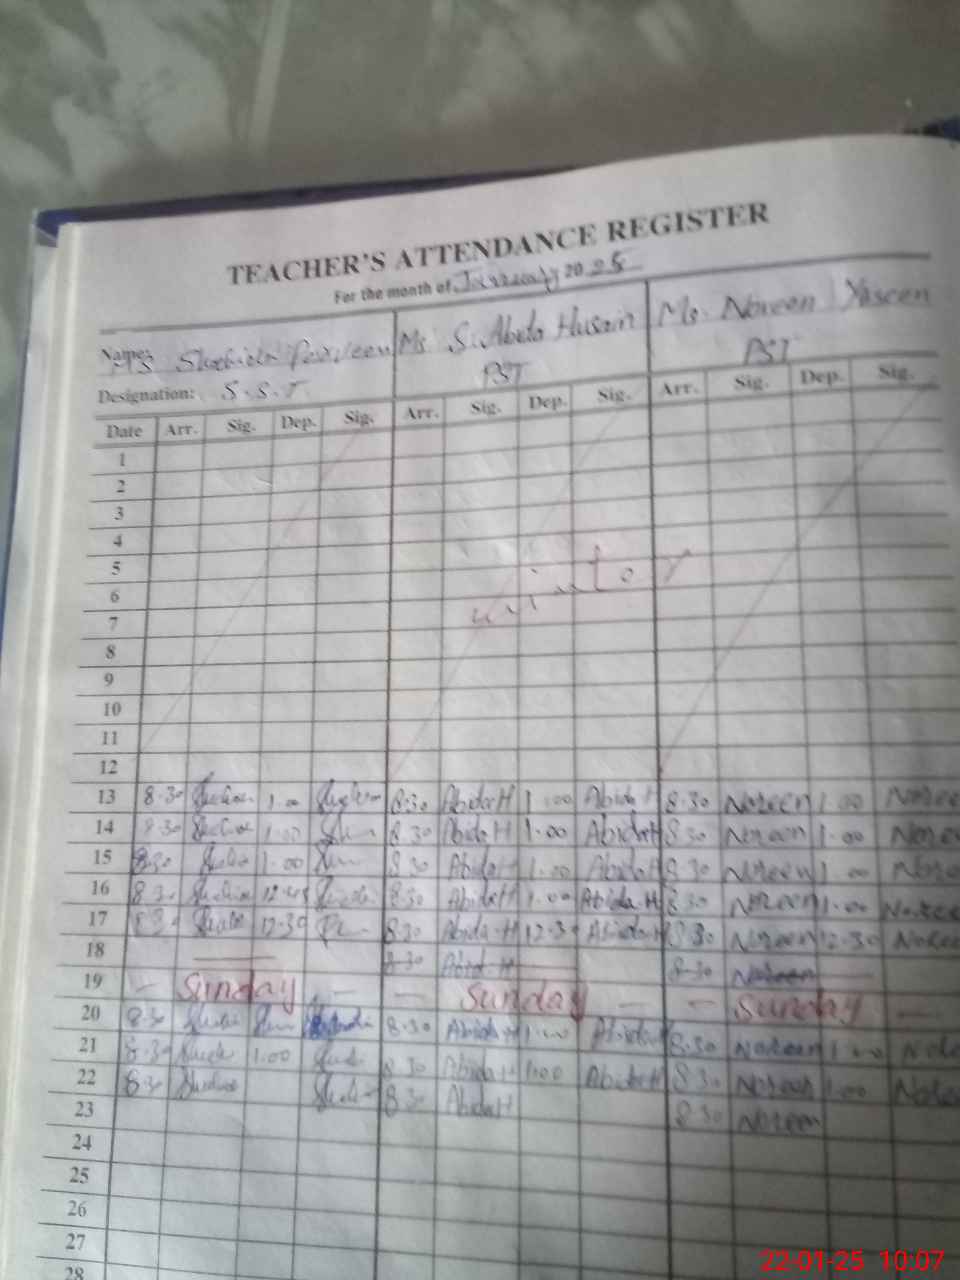 TEACHER'S ATTENDANCE REGISTER
For the month of January 2025
Name: Ms Shahida Parveen Ms S. Abida Husain Ms. Noreen Yaseen
Designation: S.S.T. PST PST
Date Arr. Sig. Dep. Sig. Arr. Sig. Dep. Sig. Arr. Sig. Dep. Sig.
1
2
3
4
5
6
winter
7
8
9
10
11
12
13 8-30 1.00 8:30 Abida H 1.00 Abida H 8-30 Noreen 1.00 Noree
14 8-30 1.00 8.30 Abida H 1.00 Abida H 8.30 Noreen 1.00 Nore
15 8.30 1.00 8.30 Abida H 1.00 Abida H 8.30 Noreen 1.00 Nore
16 8.30 12.45 8.30 Abida H 1.00 Abida H 8.30 Noreen 1.00 Noree
17 8.30 12-30 8.30 Abida H 12-30 Abida H 8.30 Noreen 12.30 Noree
18 8-30 Abida H 8-30 Noreen
19 - Sunday - - Sunday - - Sunday -
20 8.30 8.30 Abida H 1.00 Abida H 8.30 Noreen 1.00
21 8.30 1.00 8.30 Abida H 1.00 Abida H 8.30 Noreen 1.00
22 8.30 8.30 Abida H 8.30 Noreen
23
24
25
26
27
28
22-01-25 10:07